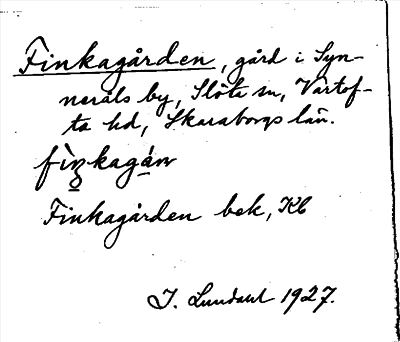 Finkagården, gård i Syn-
neråls by, Slöta sn, Vartof-
ta hd, Skaraborgs län.
Finkagården bek, Kb
I. Lundahl 1927.